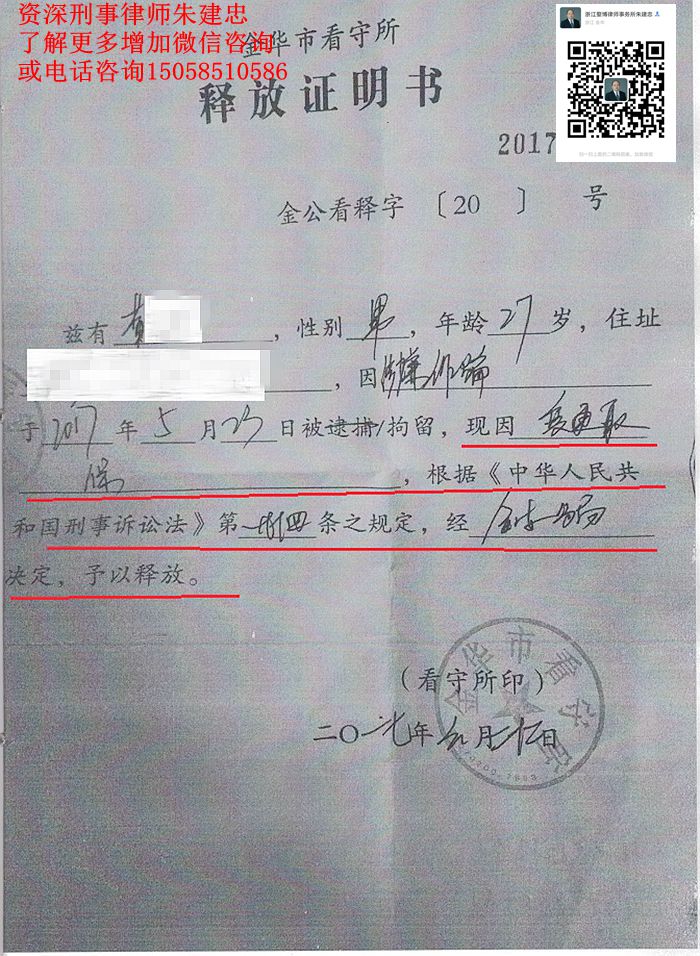 资深刑事律师朱建忠
了解更多增加微信咨询
或电话咨询15058510586
浙江整博律师事务所朱建忠
金华市看守所
释放证明书
2017
金公看释字〔20 〕 号
兹有黄 ，性别男，年龄27岁，住址
，因涉嫌诈骗
于2017年5月23日被逮捕/拘留，现因变更取
保，根据《中华人民共
和国刑事诉讼法》第 条之规定，经金华公安局
决定，予以释放。
金华市看守所
（看守所印）
二〇一七年 月 日